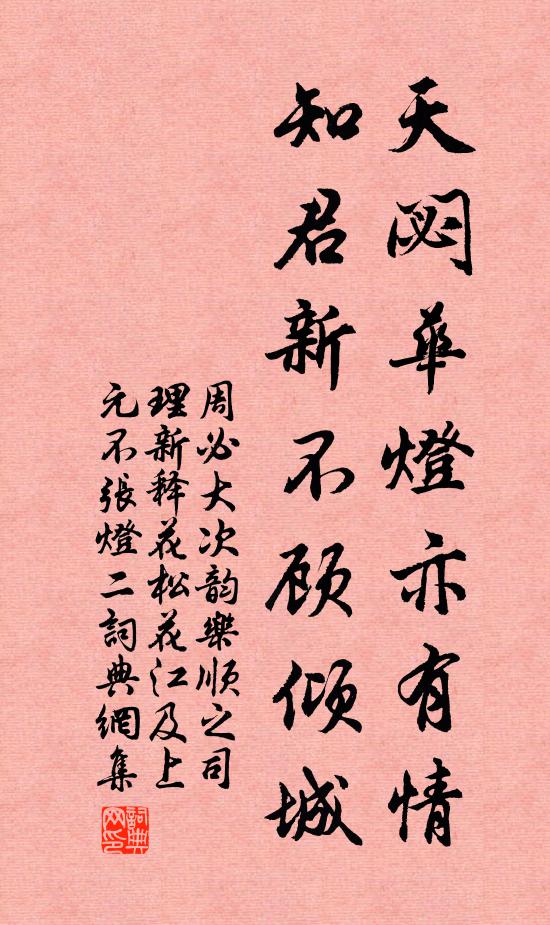 天閟華燈亦有情
知君新不顧傾城
周必大次韵樂順之司
理新释花松花江及上
元不張燈二詞典網集
詞典网印